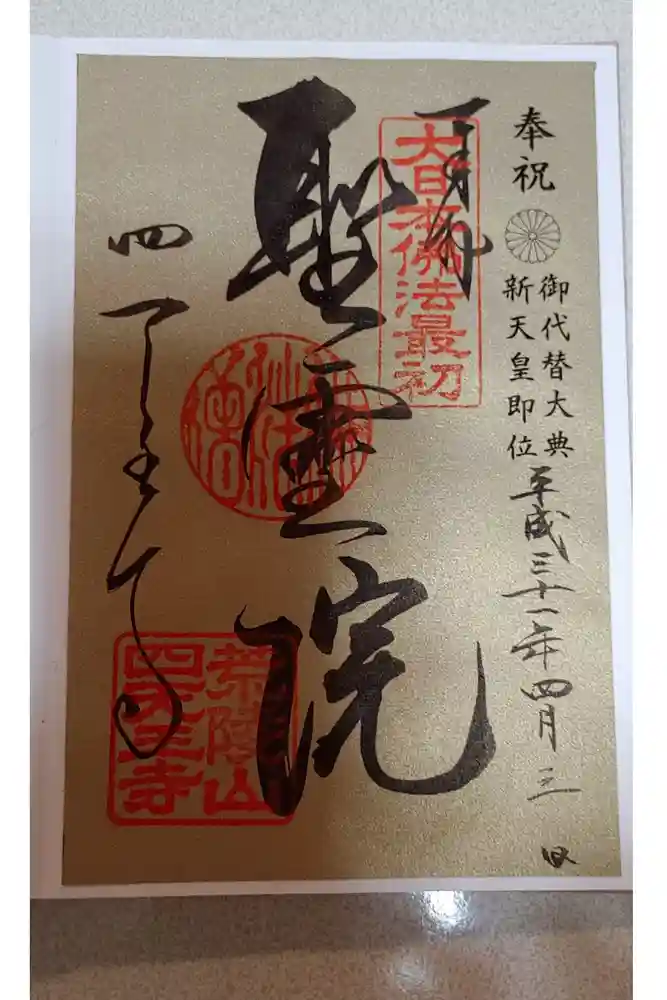 奉祝
御代替大典
新天皇即位
平成三十一年四月三日
奉拝
大日本佛法最初
聖霊院
四天王寺
荒陵山
四天王寺